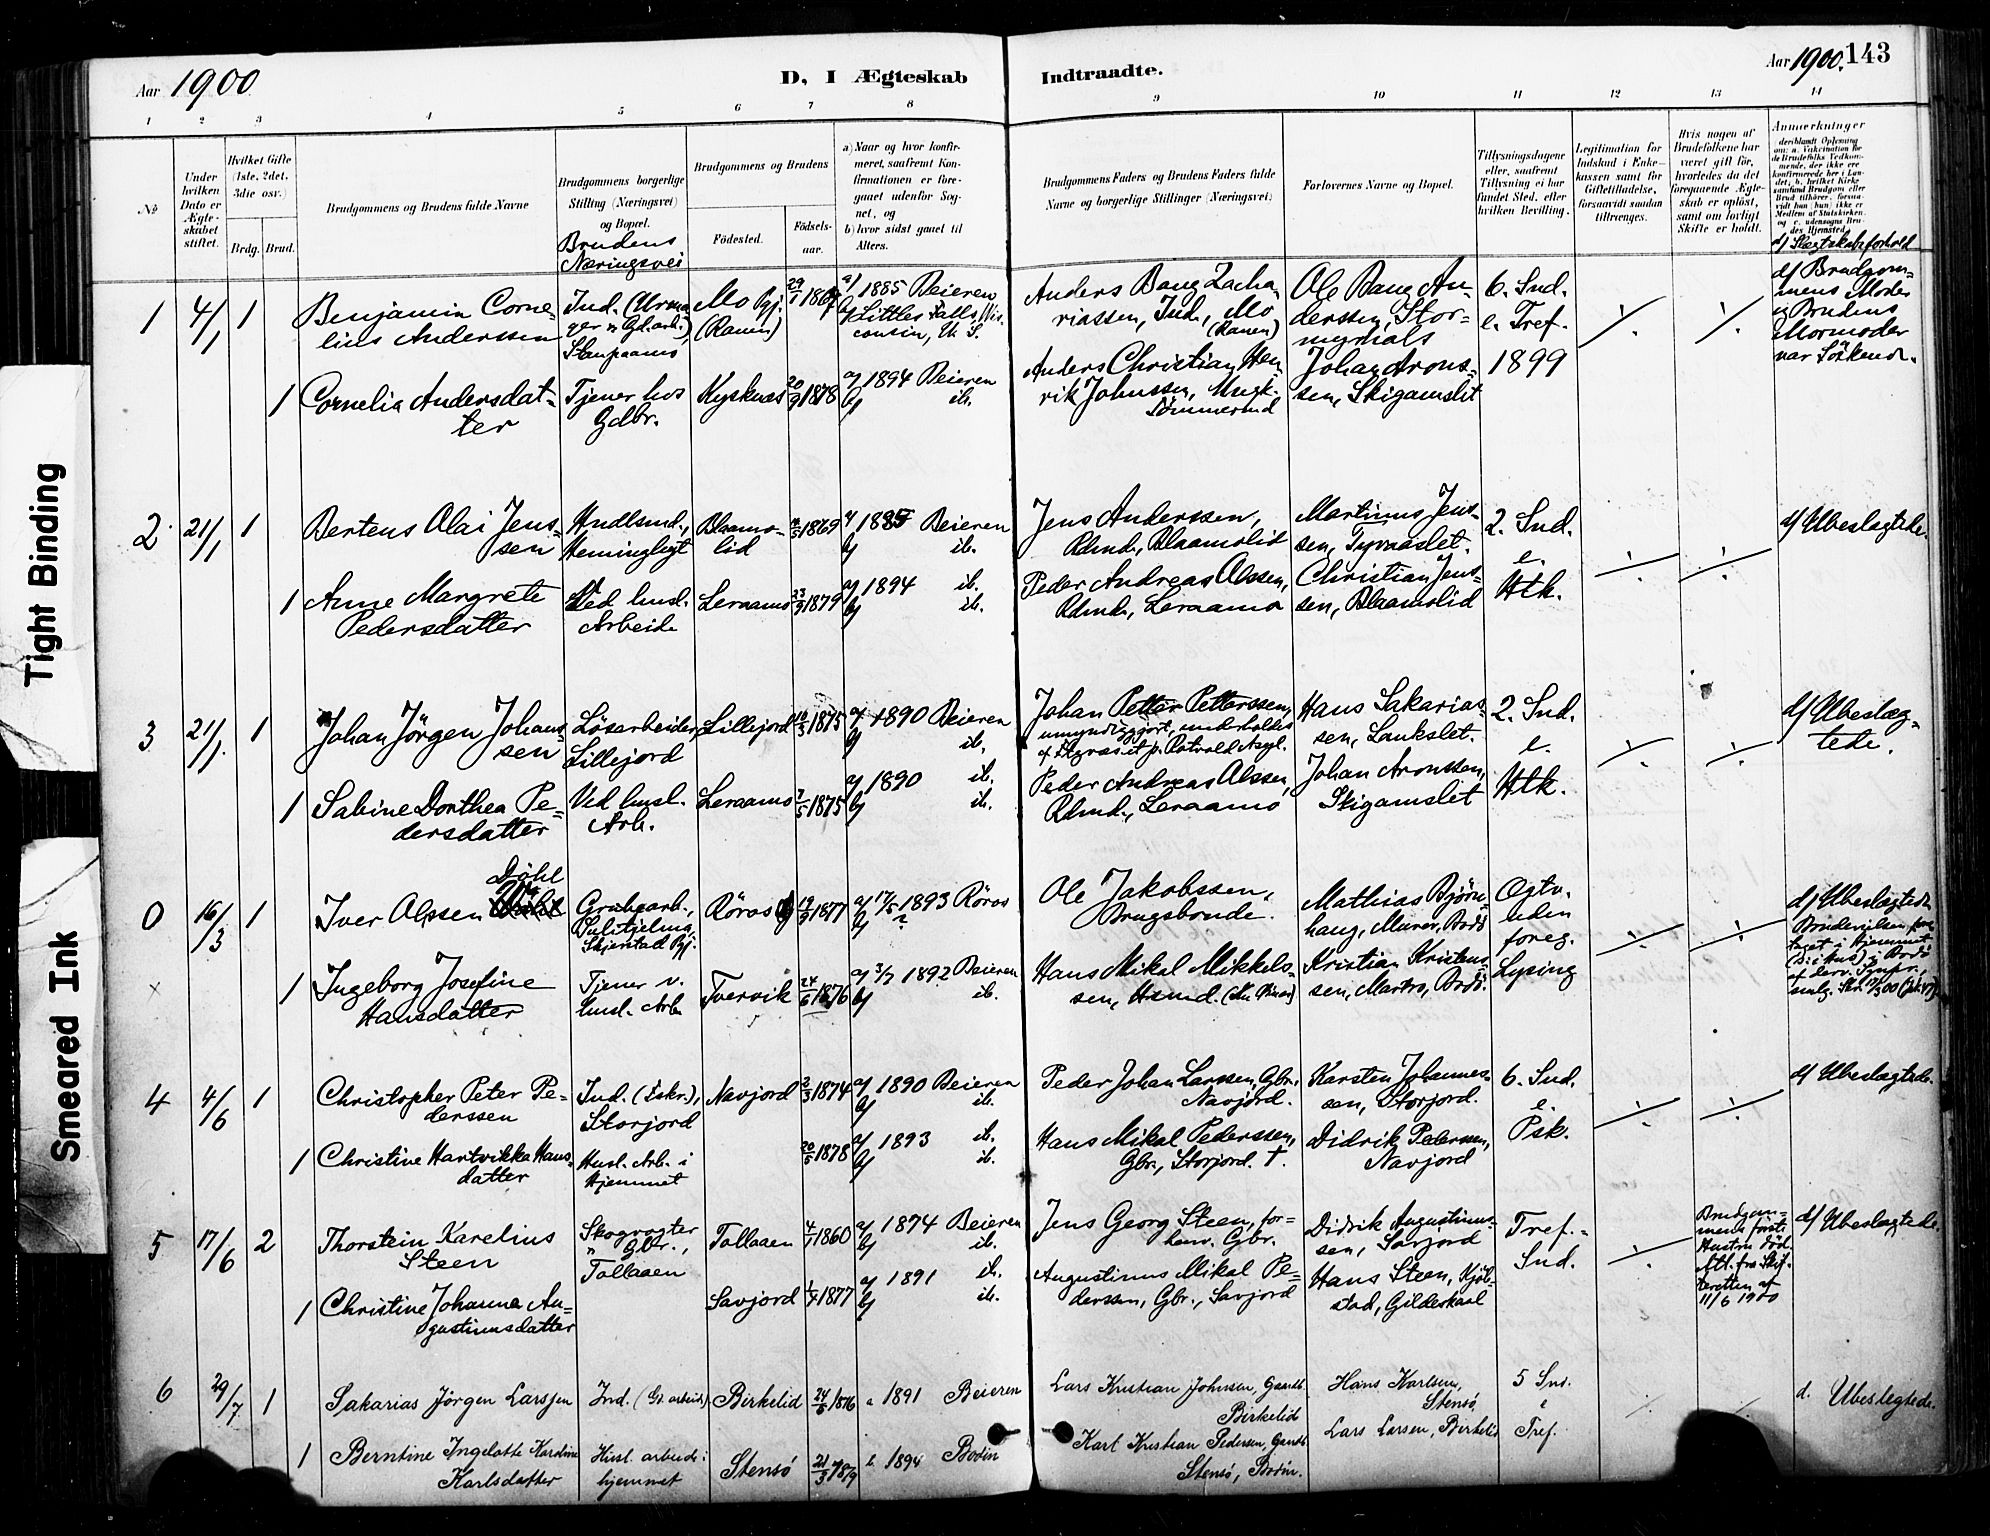 Aar 1900
D, I Ægteskab
Indtraadte.
Aar 1900.
143
1
2
3
4
5
6
7
8
9
10
11
12
13
14
No
Under hvilken Dato er Ægteskabet stiftet.
Hvilket Gifte (1ste, 2det, 3die osv.)
Brdg.
Brud.
Brudgommens og Brudens fulde Navne
Brudgommens borgerlige Stilling (Næringsvei) og Bopæl.
Brudens
Næringsvei
Brudgommens og Brudens
Fødested.
Fødselsaar.
a) Naar og hvor konfirmeret, saafremt Konfirmationen er foregaaet udenfor Sognet, og
b) hvor sidst gaaet til Alters.
Brudgommens Faders og Brudens Faders fulde Navne og borgerlige Stillinger (Næringsvei)
Forlovernes Navne og Bopæl.
Tillysningsdagene eller, saafremt Tillysning ei har fundet Sted, efter hvilken Bevilling.
Legitimation for Indskud i Enkekassen samt for Giftetilladelse, forsaavidt saadan tiltrænges.
Hvis nogen af Brudefolkene har været gift før, hvorledes da det foregaaende Ægteskab er opløst, samt om lovligt Skifte er holdt.
Anmærkninger
d) Slægtskabsforhold
1
4/1
1
Benjamin Corne-
lius Anderssen
Ind.
Mo Pgj.
(Ranen)
29/1 1869
a) 1885 Beieren
b) Little Falls, Wis-
consin, U. S.
Anders Bang Zacha-
riassen, Ind., Mo
(Ranen)
Ole Bang An-
derssen, Stor-
mymals
6. Snd.
e. Tref.
1899
d) Brudgom-
mens Moder
og Brudens
Mormoder
var Söskende.
1
Cornelia Andersdat-
ter
Tjener hos
Gdbr.
Kysknæs
20/9 1878
a) 1894 Beieren
b) ib.
Anders Christian Hen-
rik Johnssen
Johan Arons-
sen, Skigamslet
2
21/1
1
Berteus Olai Jens-
sen
Blaamo-
lid
1869
a) 1885 Beieren
b) ib.
Jens Anderssen,
Rdmd., Blaamolid
Martinus Jens-
sen, Tyvaaslet.
2. Snd.
e.
Htk.
d) Ubeslægtede.
1
Anne Margrete
Pedersdatter
Ved husl.
Arbeide
Leraamo
23/3 1879
a) 1894 ib.
b) ib.
Peder Andreas Olssen,
Rdmd., Leraamo
Christian Jens-
sen, Blaamolid
3
21/1
1
Johan Jörgen Johans-
sen
Lösarbeider,
Lillejord
Lillejord
1875
a) 1890 Beieren
b) ib.
Johan Petter Petterssen,
umyndiggjort, underholdes
Hans Sakarias-
sen, Lankslet.
2. Snd.
e.
Htk.
d) Ubeslæg-
tede.
1
Sabine Dorthea Pe-
dersdatter
Ved husl.
Arb.
Leraamo
7/5 1875
a) 1890 ib.
b) ib.
Peder Andreas Olssen,
Rdmd., Leraamo
Johan Aronssen,
Skigamslet
0
16/3
1
Iver Olssen
Döhl
Grubearb.,
Sulitjelma,
Skjerstad Pgj.
Röros
1877
a) 17/5 1893 Röros
b) ?
Ole Jakobssen,
Brugsbonde.
Mathias Bjørn-
haug, Murer, Bodö
Ogtv.
uden
foreg.
Lysing
d) Ubeslægtede
×
1
Ingeborg Josefine
Hansdatter
Tjener v.
husl. Arb.
Tvervik
24/6 1876
a) 3/7 1892 Beieren
b) ib.
Hans Mikal Mikkels-
sen, Hsmd.
Kristian Kristens-
sen, Bodö.
4
4/6
1
Christopher Peter Pe-
derssen
Ind. (Fskr.),
Storjord
Navjord
2/3 1874
a) 1890 Beieren
b) ib.
Peder Johan Larssen, Gbr.,
Navjord.
Karsten Johannes-
sen, Storjord.
6. Snd.
e.
Psk.
d) Ubeslægtede.
1
Christine Hartvikka Hans-
datter
Husl. Arb. i
Hjemmet
20/5 1878
a) 1893 ib.
b) ib.
Hans Mikal Pederssen,
Gbr., Storjord. †.
Didrik Pederssen,
Navjord
5
17/6
2
Thorstein Karelius
Steen
Skogvogter
" Gbr.,
Tollaaen
Tollaaen
4/1 1860
a) 1874 Beieren
b) ib.
Jens Georg Steen, for-
henv. Gbr.
Didrik Augustinus-
sen, Savjord
Tref.-
Snd.
Brudgom-
mens förste
Hustru död.
Att. fra Skif-
teretten af
11/6 1900
d) Ubeslægtede.
1
Christine Johanna Au-
gustinusdatter
Savjord
1/7 1877
a) 1891 ib.
b) ib.
Augustinus Mikal Pe-
derssen, Gbr., Savjord
Hans Steen, Kjöb-
stad, Gildeskaal
6
29/7
1
Sakarias Jörgen Larssen
Ind. (Gd. arbeid.)
Birkelid
24/5 1876
a 1891 Beieren
Lars Kristian Johnsen, Gaardb.
Birkelid
Hans Karlsen,
Stensö
5 Snd.
e
Tref.
d. Ubeslegtede.
1
Berntine Ingelotte Kardine
Karlsdatter
Husl. arbeide i
hjemmet
Stensö
21/3 1879
b. 1894 Bodin
Karl Kristian Pedersen, Gaardb.
Stensö, Bodin.
Lars Larsen, Birkelid
Tight Binding
Smeared Ink